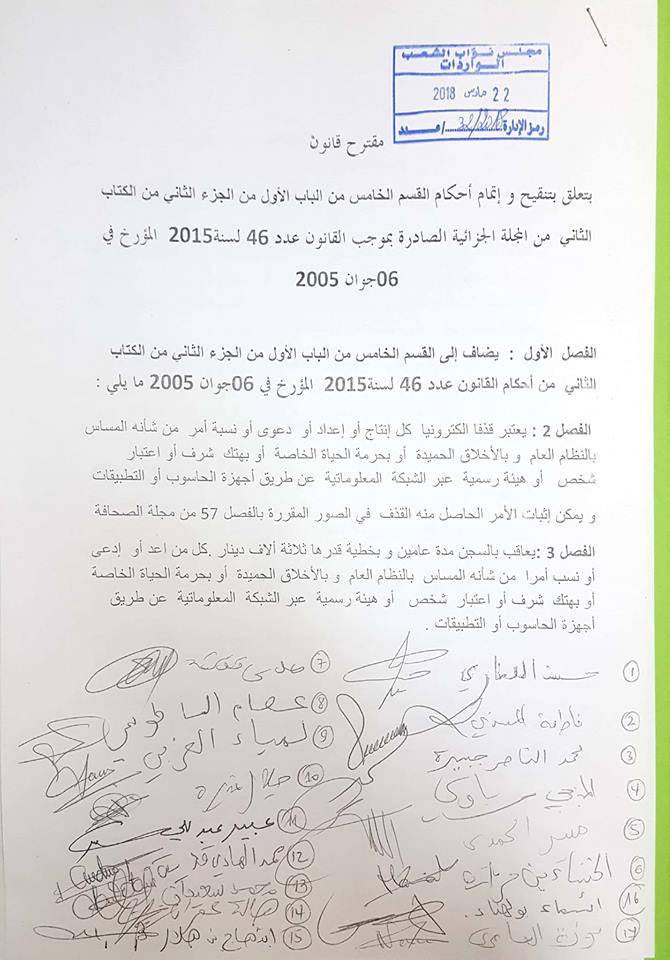 مجلس نواب الشعب
الواردات
22 مارس 2018
رمز الإدارة 32/2018 /عدد
مقترح قانون
يتعلق بتنقيح و إتمام أحكام القسم الخامس من الباب الأول من الجزء الثاني من الكتاب
الثاني من المجلة الجزائية الصادرة بموجب القانون عدد 46 لسنة2015 المؤرخ في
06جوان 2005
الفصل الأول : يضاف إلى القسم الخامس من الباب الأول من الجزء الثاني من الكتاب
الثاني من أحكام القانون عدد 46 لسنة2015 المؤرخ في 06جوان 2005 ما يلي :
الفصل 2 : يعتبر قذفا الكترونيا كل إنتاج أو إعداد أو دعوى أو نسبة أمر من شأنه المساس
بالنظام العام و بالأخلاق الحميدة أو بحرمة الحياة الخاصة أو بهتك شرف أو اعتبار
شخص أو هيئة رسمية عبر الشبكة المعلوماتية عن طريق أجهزة الحاسوب أو التطبيقات
و يمكن إثبات الأمر الحاصل منه القذف في الصور المقررة بالفصل 57 من مجلة الصحافة
الفصل 3 :يعاقب بالسجن مدة عامين و بخطية قدرها ثلاثة ألاف دينار .كل من اعد أو إدعى
أو نسب أمرا من شأنه المساس بالنظام العام و بالأخلاق الحميدة أو بحرمة الحياة الخاصة
أو بهتك شرف أو اعتبار شخص أو هيئة رسمية عبر الشبكة المعلوماتية عن طريق
أجهزة الحاسوب أو التطبيقات .
1
2 فاطمة المسدي
3 محمد الناصر جبيرة
4
5
6 الخنساء بن حراث
16 أسماء بوالهناء
17
7
8 عصام الماطوسي
9 لمياء الغربي
10 جلال غديرة
11 عبير عبدلي
12 محمد الهادي
13 محمد سعيدان
14 هالة عمران
15 ابتهاج بن هلال